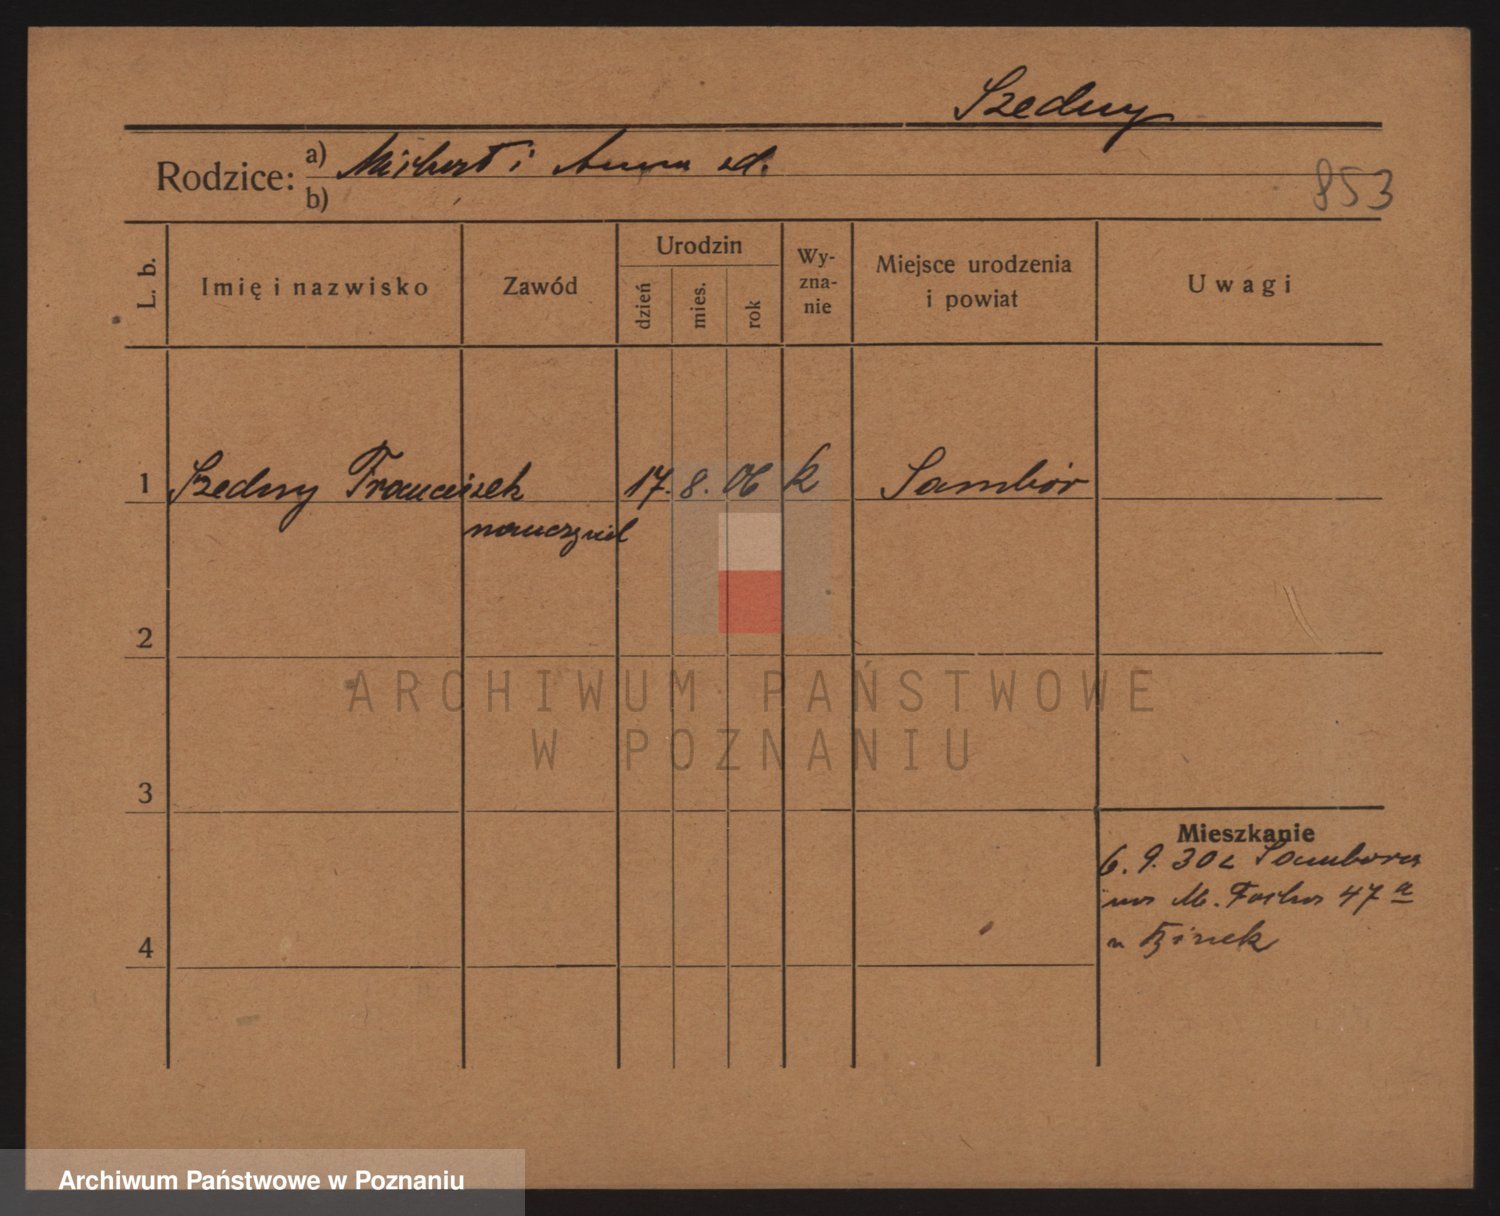 Szedny
Rodzice: a) Michał i Anna
b)
853
L. b. Imię i nazwisko Zawód Urodzin dzień mies. rok Wy-zna-nie Miejsce urodzenia i powiat Uwagi
1 Szedny Franciszek 17. 8. 06 k Sambór
nauczyciel
2
ARCHIWUM PAŃSTWOWE
W POZNANIU
3
Mieszkanie
6. 9. 30 z Sambora
na M. Focha 47 a
u
4
Archiwum Państwowe w Poznaniu